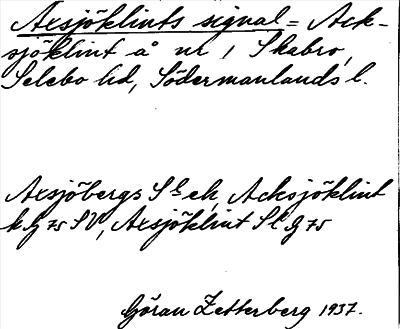 Axsjöklints signal = Ack-
sjöklint å nr 1 Skabro,
Selebo hd, Södermanlands l.
Axsjöbergs Sk ek, Acksjöklint
k G 75 SV, Axsjöklint Sk G 75
Göran Zetterberg 1937.